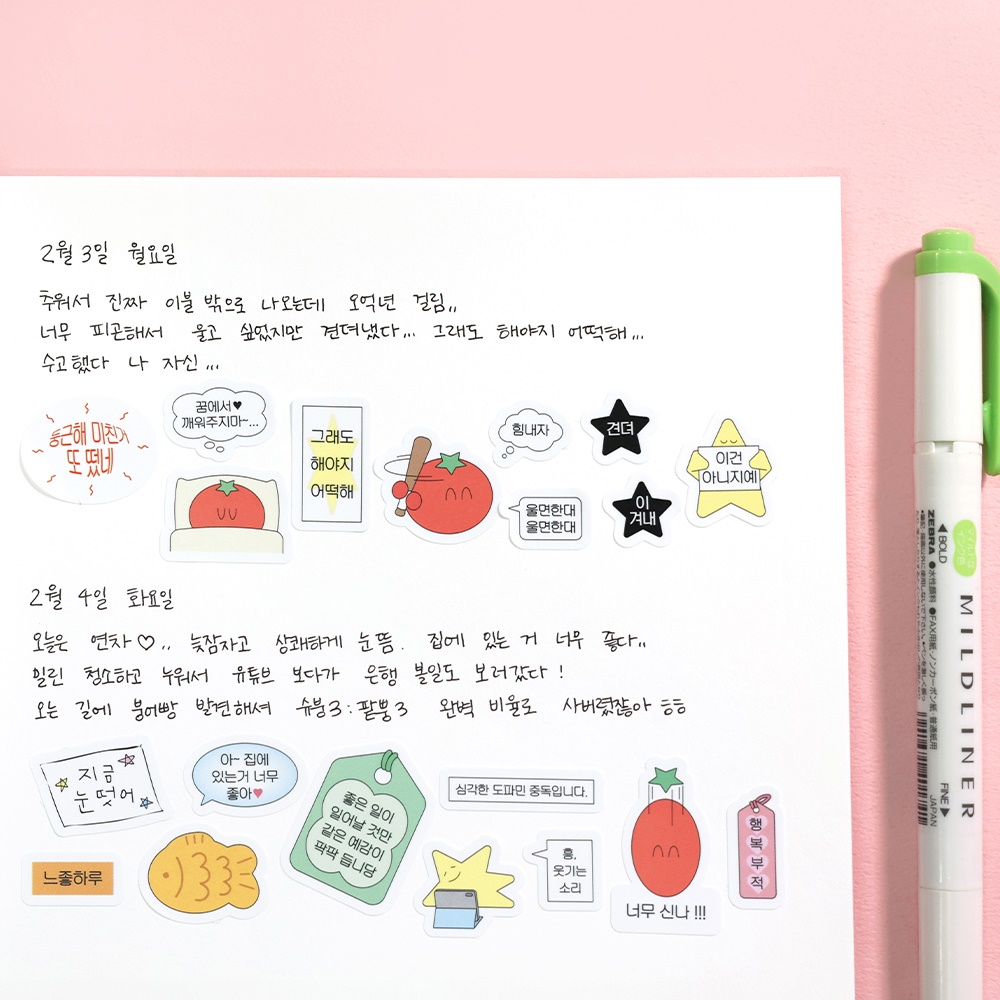 2월 3일 월요일
추워서 진짜 이불 밖으로 나오는데 오억년 걸림,,
너무 피곤해서 울고 싶었지만 견뎌냈다... 그래도 해야지 어떡해...
수고했다 나 자신...
둥근해 미친거
또 떴네
꿈에서♥
깨워주지마~...
그래도
해야지
어떡해
힘내자
울면한대
울면한대
견뎌
이
겨내
이건
아니지예
2월 4일 화요일
오늘은 연차♡.. 늦잠자고 상쾌하게 눈뜸. 집에 있는 거 너무 좋다,,
밀린 청소하고 누워서 유튜브 보다가 은행 볼일도 보러갔다!
오는 길에 붕어빵 발견해서 슈붕3:팥붕3 완벽 비율로 사버렸잖아 ㅎㅎ
지금
눈떳어
아~ 집에
있는거 너무
좋아♥
좋은 일이
일어날 것만
같은 예감이
팍팍 듭니당
심각한 도파민 중독입니다.
느좋하루
흥,
웃기는
소리
너무 신나 !!!
행
복
부
적
◀BOLD
ZEBRA ●水性顔料 ●FAX用紙・ノンカーボン紙・普通紙用
MILDLINER
FINE▶
JAPAN